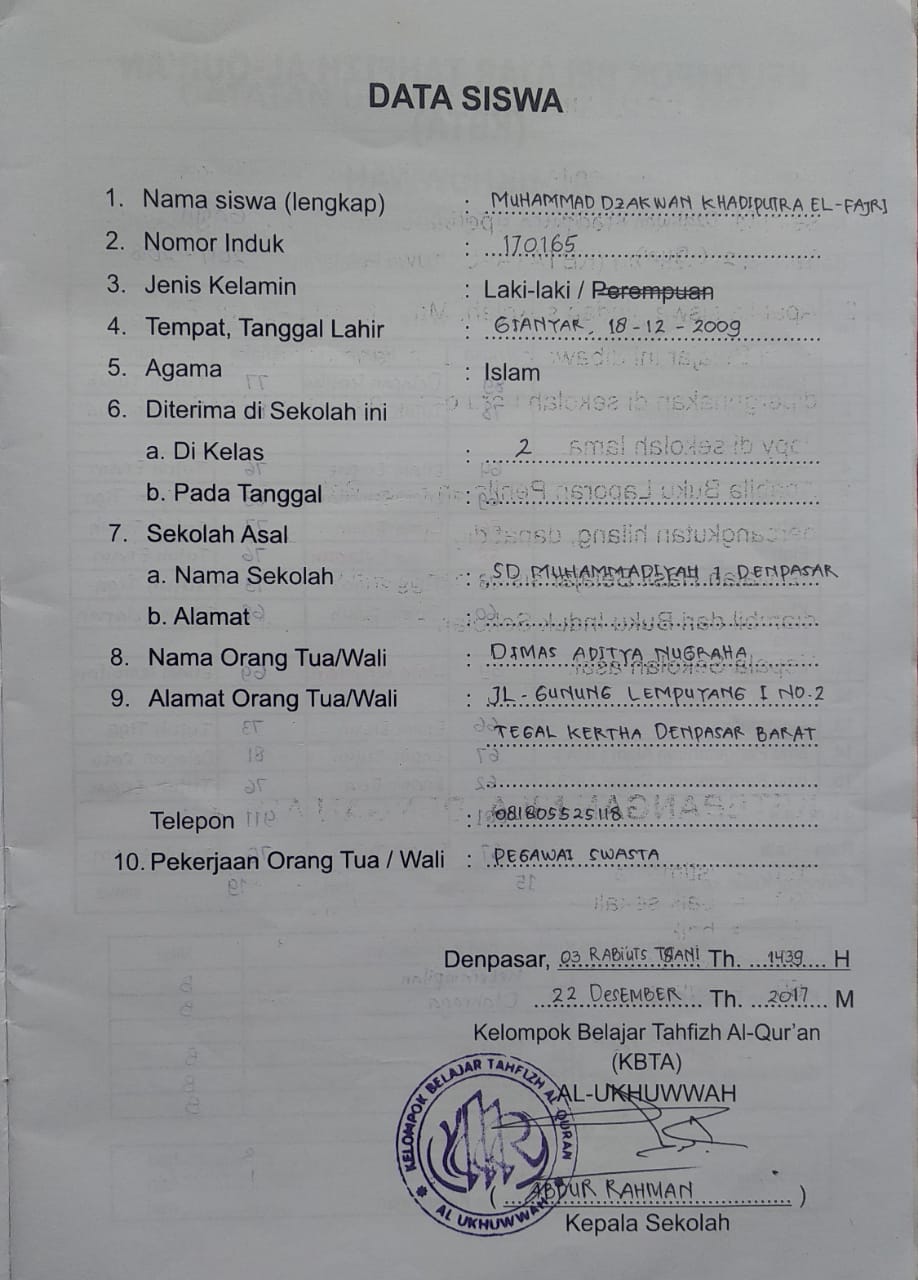 DATA SISWA
1. Nama siswa (lengkap) : MUHAMMAD DZAKWAN KHADIPUTRA EL-FAJRI
2. Nomor Induk : 170165
3. Jenis Kelamin : Laki-laki / Perempuan
4. Tempat, Tanggal Lahir : GIANYAR, 18-12-2009
5. Agama : Islam
6. Diterima di Sekolah ini
a. Di Kelas : 2
b. Pada Tanggal :
7. Sekolah Asal
a. Nama Sekolah : SD MUHAMMADIYAH 1 DENPASAR
b. Alamat :
8. Nama Orang Tua/Wali : DIMAS ADITYA NUGRAHA
9. Alamat Orang Tua/Wali : JL. GUNUNG LEMPUYANG I NO.2
TEGAL KERTHA DENPASAR BARAT
Telepon : 081805525118
10. Pekerjaan Orang Tua / Wali : PEGAWAI SWASTA
Denpasar, 03 RABIUTS TSANI Th. 1439 H
22 DESEMBER Th. 2017 M
Kelompok Belajar Tahfizh Al-Qur'an
(KBTA)
AL-UKHUWWAH
KELOMPOK BELAJAR TAHFIZH AL QURAN
AL UKHUWWAH
( ABDUR RAHMAN )
Kepala Sekolah